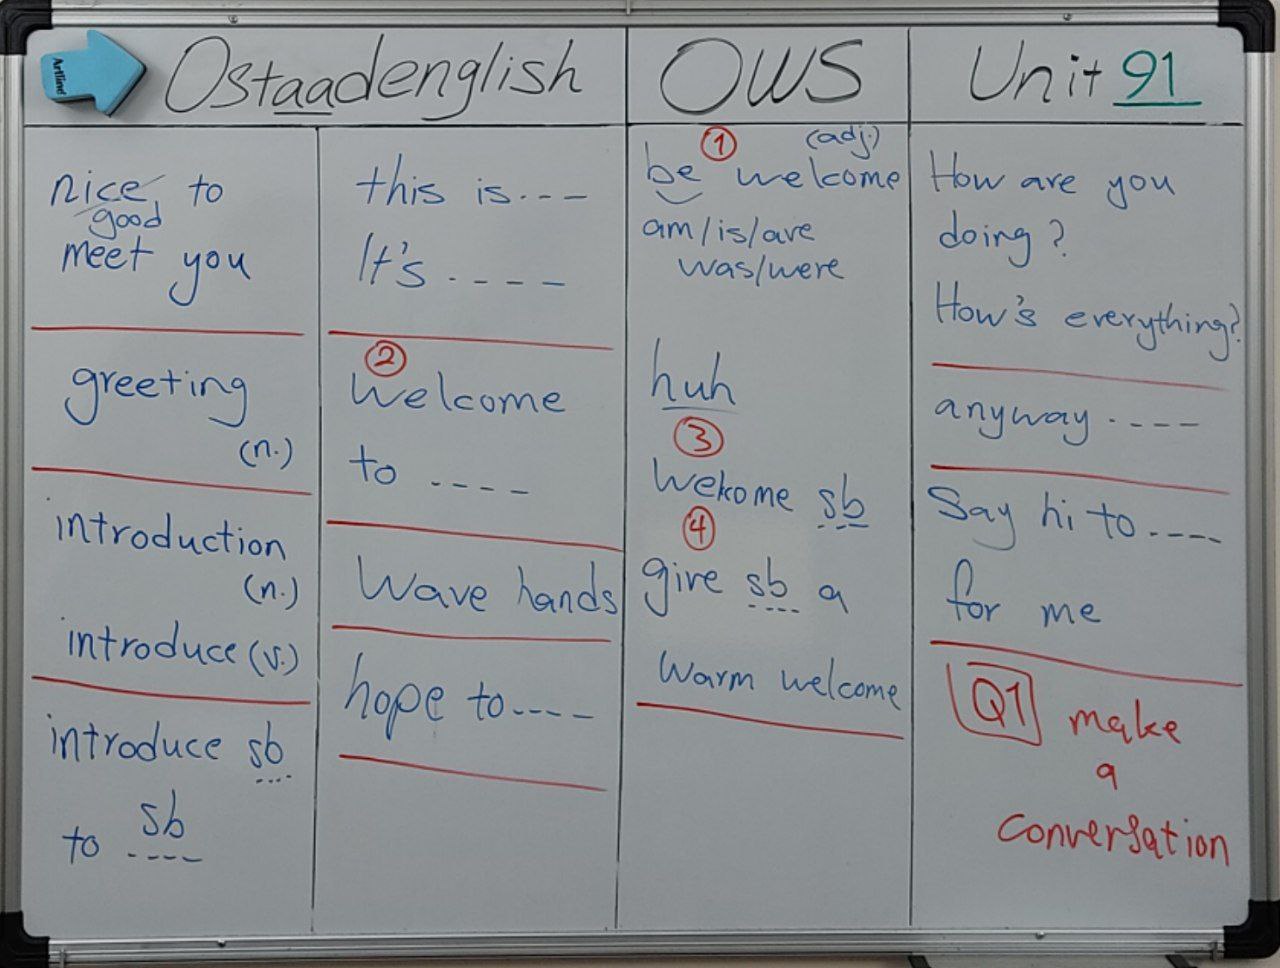 Artline
Ostaadenglish
OWS
Unit 91
nice to
good
meet you
greeting
(n.)
introduction
(n.)
introduce (v.)
introduce sb
to sb
this is---
It's ----
②
Welcome
to ----
Wave hands
hope to----
① (adj.)
be welcome
am/is/are
was/were
huh
③
Welcome sb
④
give sb a
warm welcome
How are you
doing?
How's everything?
anyway ----
Say hi to ----
for me
Q1 make
a
conversation